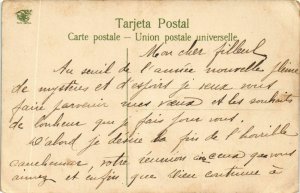 Tarjeta Postal
Carte postale - Union postale universelle
Mon cher filleul
Au seuil de l'année nouvelle pleine
de mystères et d'espoirs je veux vous
faire parvenir mes vœux et les souhaits
de bonheur que je fais pour vous.
D'abord je désire la fin de l'horrible
cauchemar, votre réunion à ceux que vous
aimez et enfin que Dieu continue à